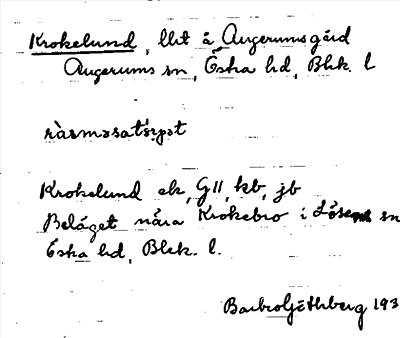 Krokelund, llit å Augerumsgård
Augerums sn, Östra hd, Blek. l
ràsmɘsatʹörpɘt
Krokelund ek, GII, kb, jb
Beläget nära Krokebro i Lösens sn
Östra hd, Blek. l.
Barbro Ljethberg 193